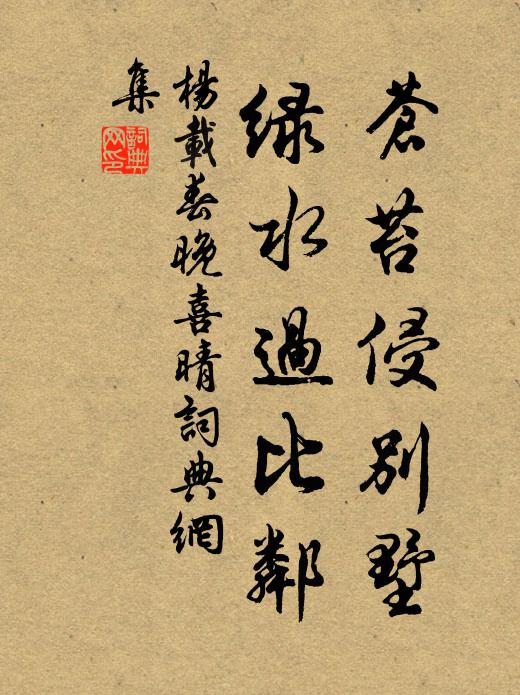 蒼苔侵別墅
緑水過比鄰
楊載春晚喜晴詞典網
集
詞典網印